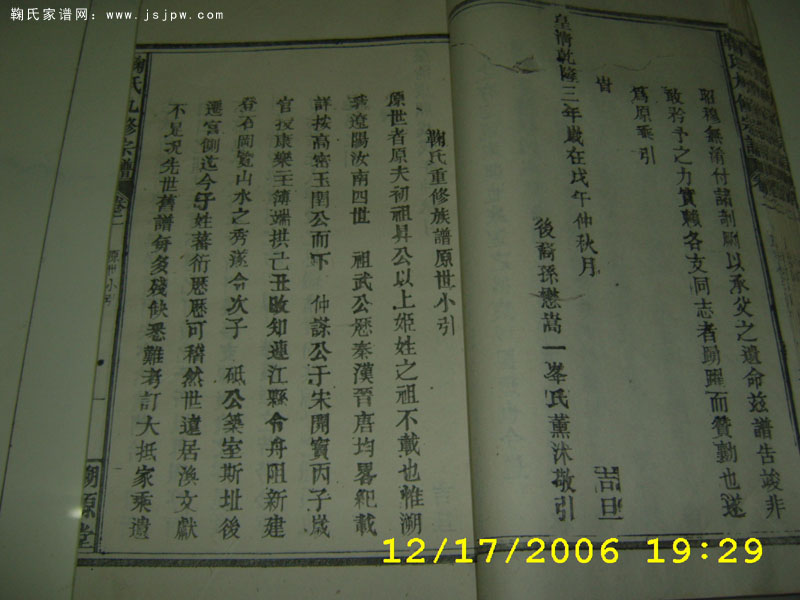 鞠氏家谱网：www.jsjpw.com
昭穆無淆付諸剞劂以承父之遺命茲譜告竣非
敢矜予之力實賴各支同志者踴躍而贊勷也遂
爲原乘引
旹
皇淸乾隆三年歲在戊午仲秋月
吉旦
後裔孫懋嵩一峯氏薰沐敬引
鞠氏重修族譜原世小引
原世者原夫初祖昇公以上姬姓之祖不載也惟溯
遼陽汝南四世 祖武公歷秦漢晉唐均畧紀載
詳按高密玉圍公而下 仲謀公于宋開寶丙子歲
官授康樂主簿端拱己丑敭知連江縣令舟阻新建
登石岡覽山水之秀遂令次子 砥公築室斯址後
遷宮側迄今子姓蕃衍歷歷可稽然世遠居渙文獻
不足况先世舊譜每多殘缺悉難考訂大抵家乘遺
鞠氏九修宗譜
卷一
原世小引
溯源堂
12/17/2006 19:29